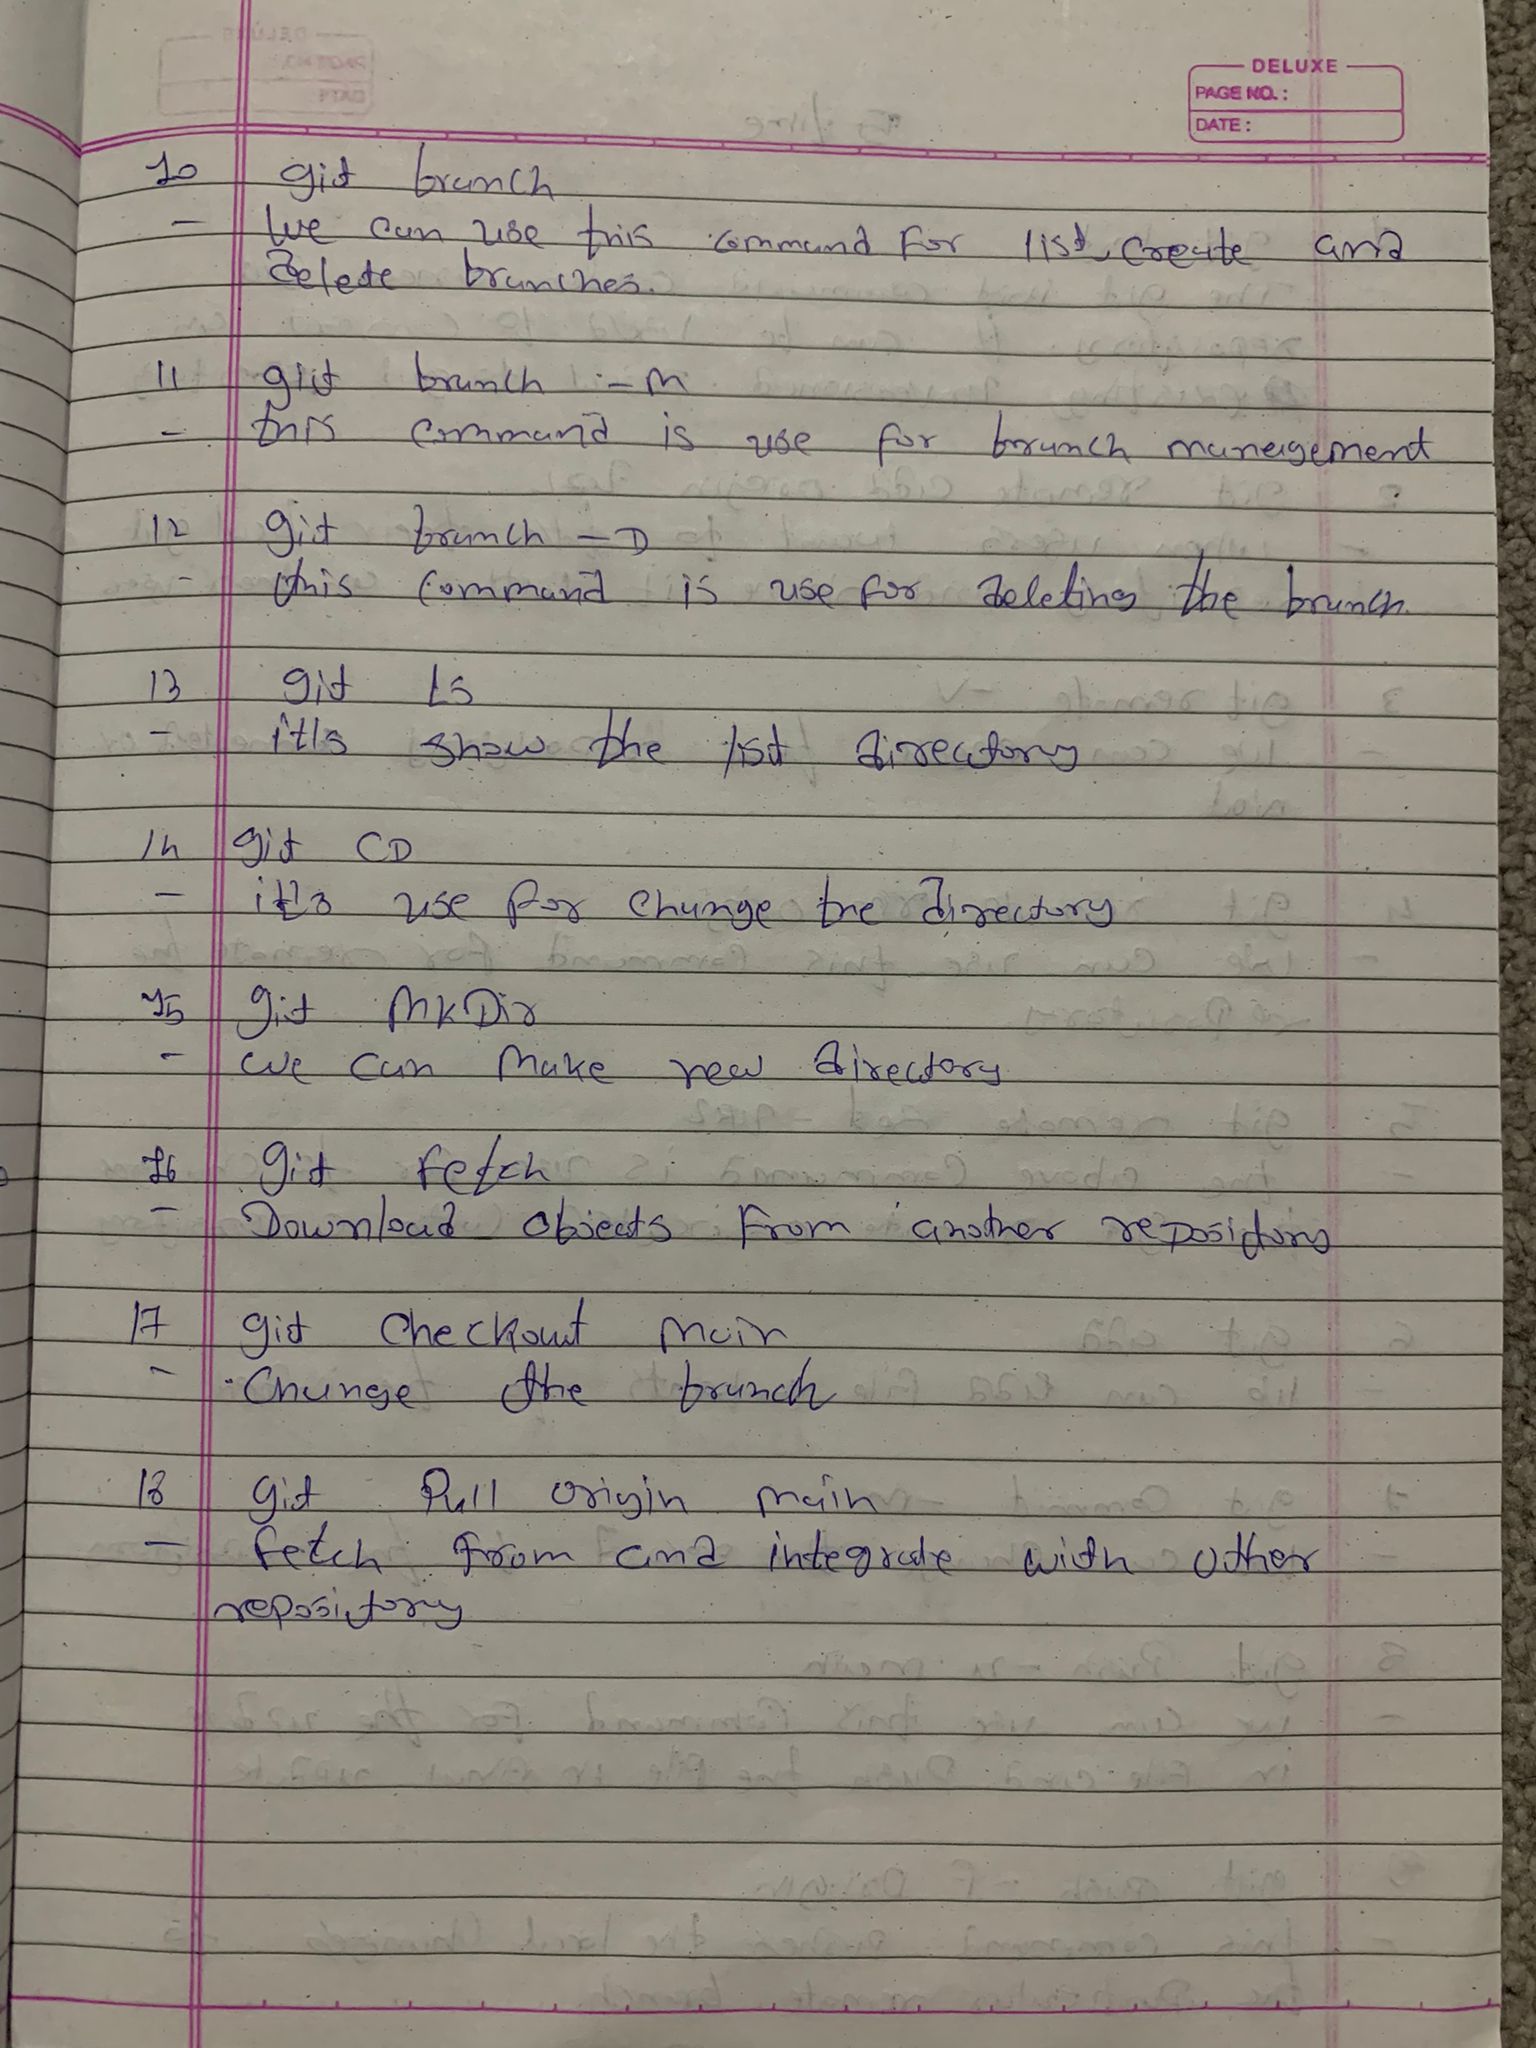 DELUXE
PAGE NO. :
DATE :
10 git branch
- We can use this command for list, create and
delete branches.
11 git branch -M
- this command is use for branch management
12 git branch -D
- this command is use for deleting the branch.
13 git LS
- it's show the list directory
14 git CD
- it's use for change the directory
15 git MkDir
- we can make new directory
16 git Fetch
- Download objects from another repository
17 git checkout main
- Change the branch
18 git Pull origin main
- fetch from and integrate with other
repository